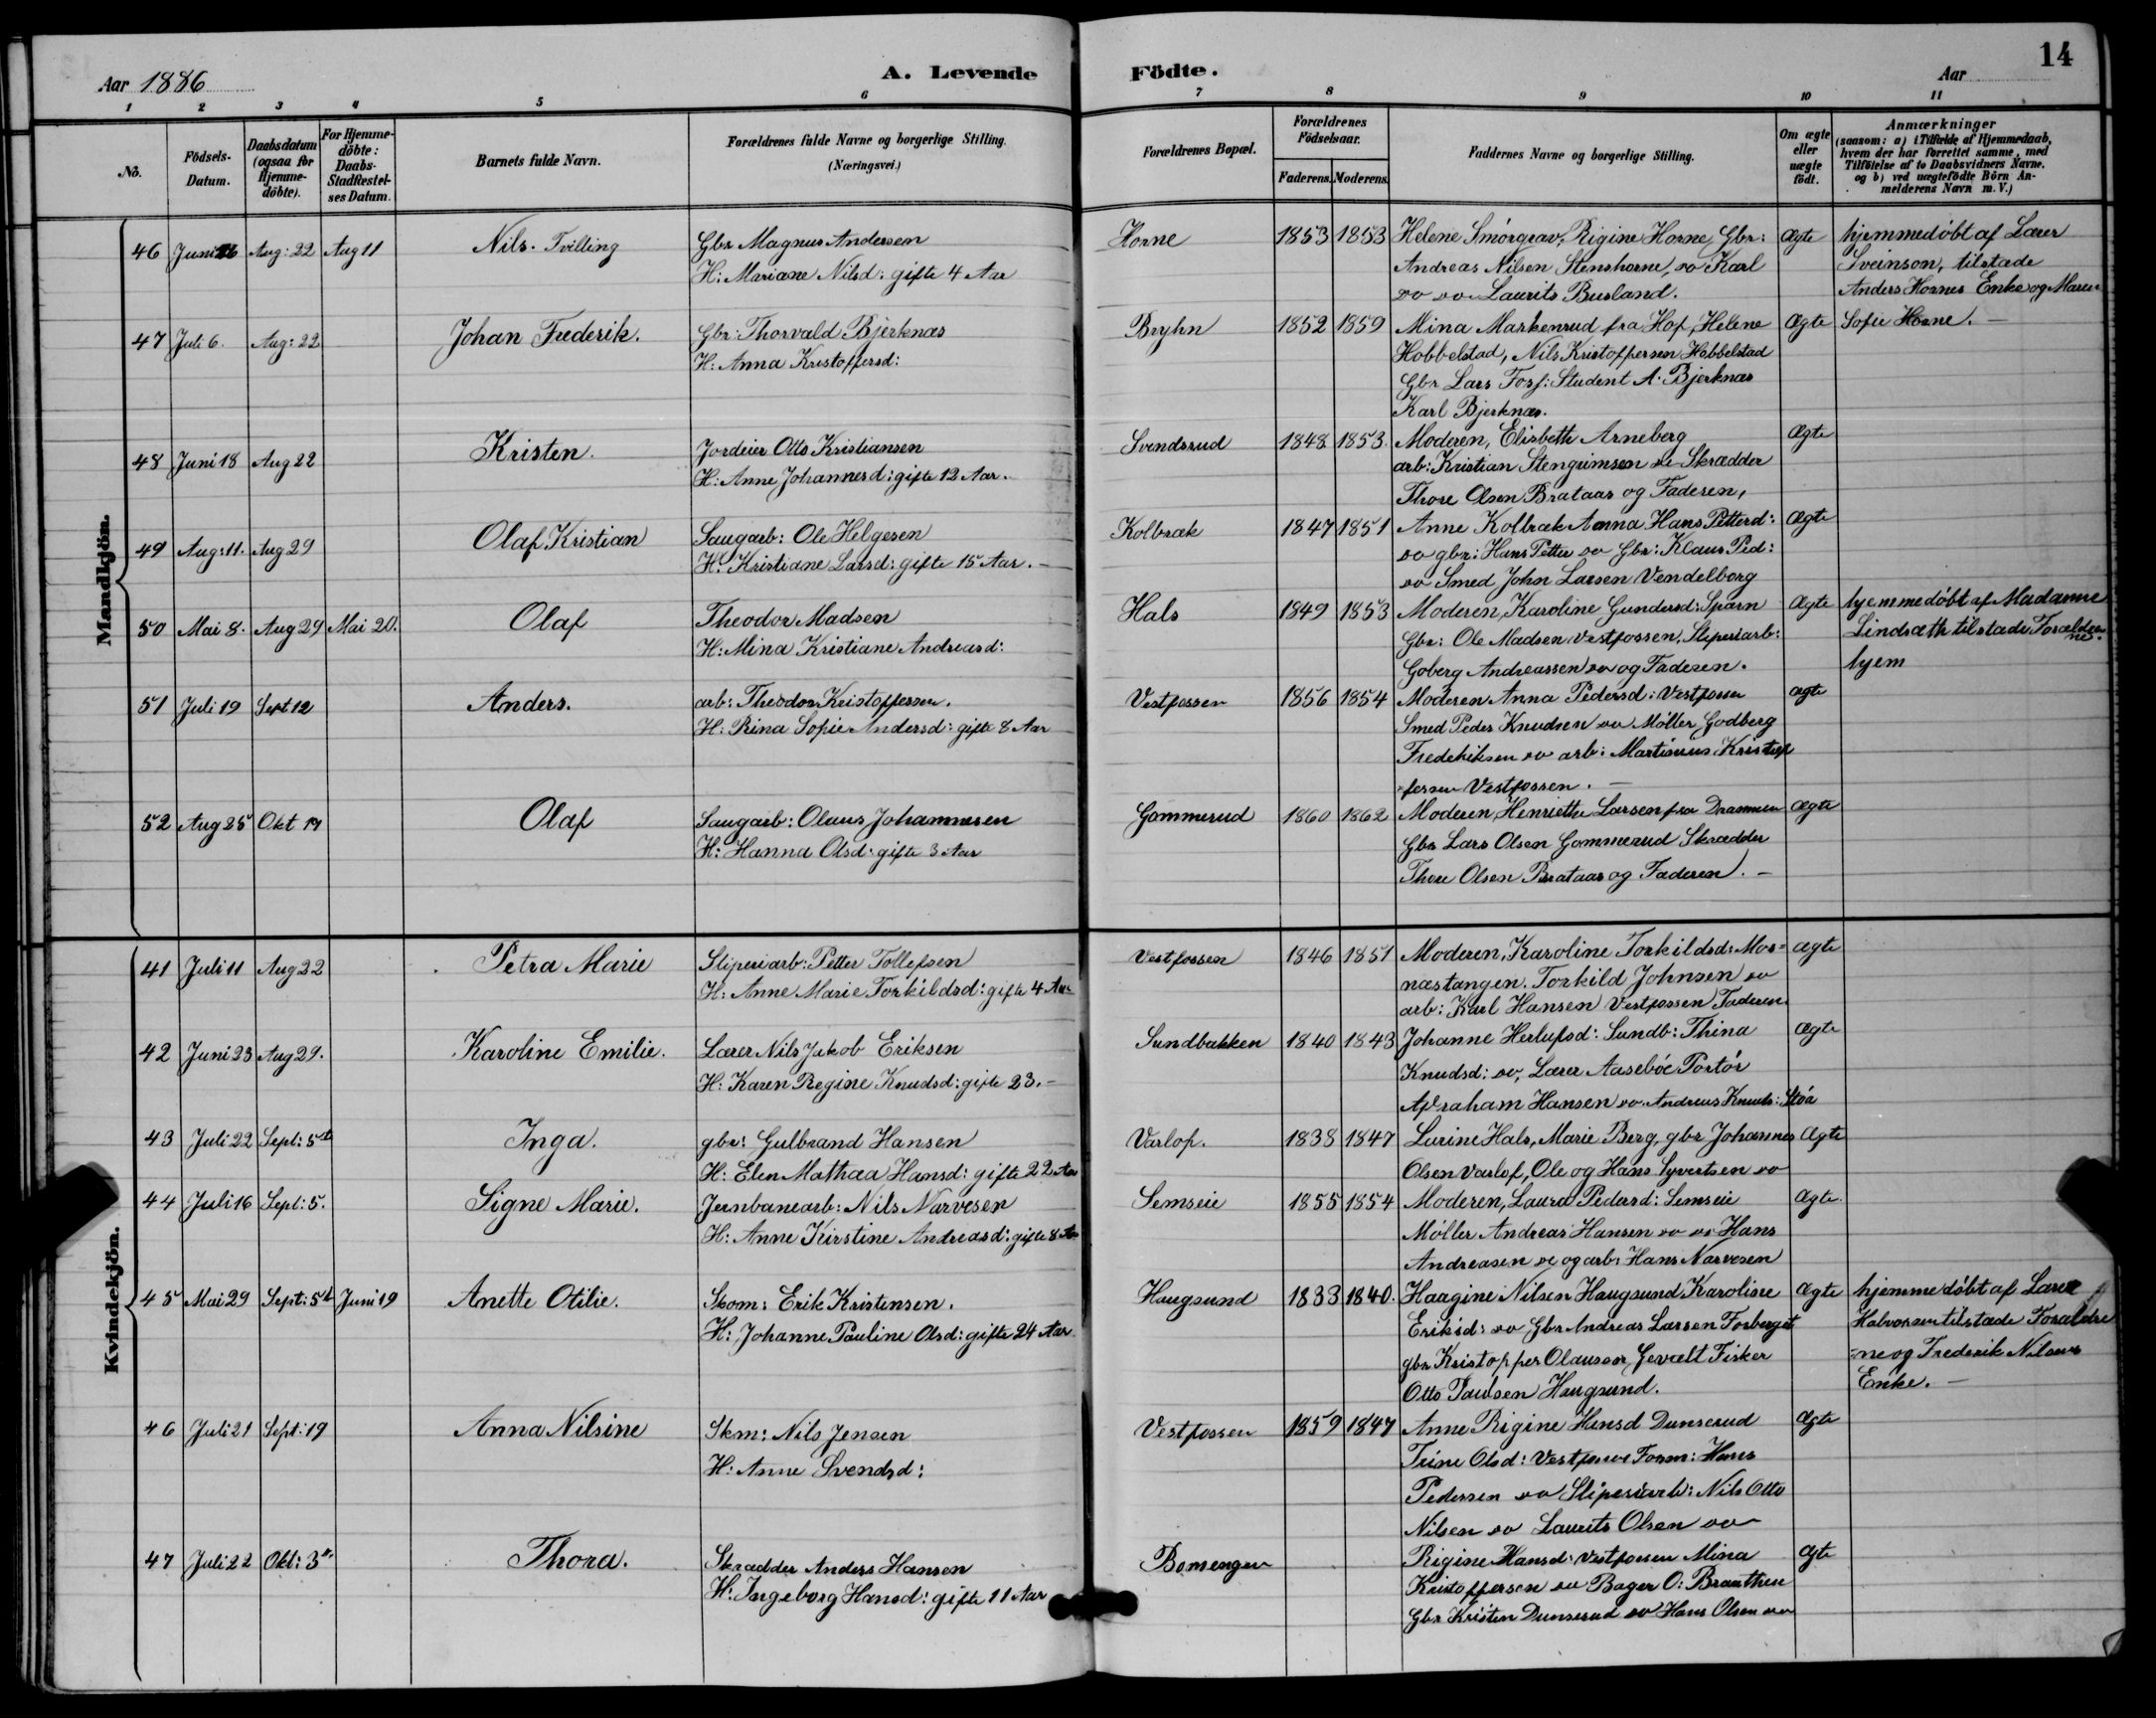 14
Aar 1886
A. Levende Födte.
Aar
1 2 3 4 5 6 7 8 9 10 11
No.
Födsels-Datum.
Daabsdatum (ogsaa for Hjemme-döbte).
For Hjemme-döbte: Daabs-Stadfæstel-ses Datum.
Barnets fulde Navn.
Forældrenes fulde Navne og borgerlige Stilling. (Næringsvei.)
Forældrenes Bopæl.
Forældrenes Födselsaar.
Faderens. Moderens.
Faddernes Navne og borgerlige Stilling.
Om ægte eller uægte födt.
Anmærkninger
(saasom: a) i Tilfælde af Hjemmedaab,
hvem der har forrettet samme, med
Tilföielse af to Daabsvidners Navne.
og b) ved uægtefödte Börn An-
melderens Navn m. V.)
Mandkjön.
46 Juni Aug: 22 Aug 11 Nils. Tvilling Gbr Magnus Andersen Horne 1853 1853 Helene Smórgrav, Rigine Horne, Gbr: Ægte hjemmedøbt af Lærer
H: Mariane Nilsd: gifte 4 Aar Andreas Nilsen Stenshorne, oo Karl Svenson, tilstade
oo oo Laurits Busland. Anders Hornes Enke og Maren
47 Juli 6. Aug: 22 Johan Frederik. Gbr: Thorvald Bjerknæs Bryhn 1852 1859 Mina Markenrud fra Hof, Helene Ægte Sofie Horne. —
H: Anna Kristoffersd: Hobbelstad, Nils Kristoffersen Hobbelstad
Gbr Lars Fosf: Student A. Bjerknæs
Karl Bjerknæs.
48 Juni 18 Aug 22 Kristen. Jordeier Otto Kristiansen Svendsrud 1848 1853. Moderen, Elisbeth Arneberg Ægte
H: Anne Johannesd: gifte 12 Aar. arb: Kristian Stengrimsen oo Skrædder
Thore Olsen Brataas og Faderen,
49 Aug: 11. Aug 29 Olaf Kristian Saugarb: Ole Helgesen Kolbræk 1847 1851 Anne Kolbræk Anna Hans Petterd: Ægte
H: Kristiane Larsd: gifte 15 Aar. — oo gbr: Hans Petter oo Gbr: Klaus Ped:
oo Smed John Larsen Vendelborg
50 Mai 8. Aug 29 Mai 20. Olaf Theodor Madsen Hals 1849 1853 Moderen, Karoline Gundersd: Sparn Ægte hjemmedöbt af Madamme
H: Mina Kristiane Andreasd: Gbr: Ole Madsen Vestfossen, Sliperiarb: Lindsæth tilstade Forældrene
Goberg Andreassen oo og Faderen. hjem
51 Juli 19 Sept 12 Anders. arb: Theodor Kristoffersen. Vestfossen 1856 1854 Moderen Anna Pedersd: Vestfossen ægte
H: Rina Sofie Andersd: gifte 8 Aar Smed Peder Knudsen oo Møller Godberg
Frederiksen oo arb: Martinius Kristof
fersen Vestfossen. —
52 Aug 25 Okt Olaf Saugarb: Olaus Johannesen Gommerud 1860 1862 Moderen, Henriethe Larsen fra Drammen Ægte
H: Hanna Olsd: gifte 3 Aar Gbr Lars Olsen Gommerud Skrædder
Thore Olsen Brataas og Faderen. —
Kvindekjön.
41 Juli 11 Aug 22 Petra Marie Sliperiarb: Petter Tollefsen Vestfossen 1846 1851 Moderen, Karoline Torkildsd: Mos= ægte
H: Anne Marie Torkildsd: gifte 4 Aar næstangen. Torkild Johnsen oo
arb: Karl Hansen Vestfossen Faderen
42 Juni 23 Aug 29. Karoline Emilie. Lærer Nils Jakob Eriksen Sundbakken 1840 1843 Johanne Herlufsd: Sundb: Thina Ægte
H: Karen Regine Knudsd: gifte 23. — Knudsd: oo, Lærer Aasebóe Portór
Abraham Hansen oo Andreas Knuds: Stóa
43 Juli 22 Sept: 5te Inga. gbr: Gulbrand Hansen Varlof. 1838 1847 Lurine Hals, Marie Berg, gbr Johannes Ægte
H: Elen Mathea Hansd: gifte 22 Aar Olsen Varlof, Ole og Hans Syvertsen oo
44 Juli 16 Sept: 5. Signe Marie. Jernbanearb: Nils Narvesen Semseie 1855 1854 Moderen, Laura Pedersd: Semseie Ægte.
H: Anne Kirstine Andreasd: gifte 8 Aar Møller Andreas Hansen oo oo Hans
Andreasen oo og arb: Hans Narvesen
45 Mai 29 Sept: 5te Juni 19 Anette Otilie. Skom: Erik Kristensen. Haugsund 1833 1840. Haagine Nilsen Haugsund Karoline Ægte hjemmedöbt af Lærer
H: Johanne Pauline Olsd: gifte 24 Aar Eriksd: oo Gbr Andreas Larsen Forberget Halvorsen tilstade Forældre
gbr Kristoffer Olaussen, Gevælt Fisker =ne og Frederik Nilsens
Otto Paulsen Haugsund. Enke. —
46 Juli 21 Sept: 19 Anna Nilsine Skm: Nils Jensen Vestfossen 1859 1847 Anne Rigine Hansd Dunserud Ægte
H: Anne Svendsd: Trine Olsd: Vestfossen Form: Hans
Pedersen oo Sliperiarb: Nils Otto
Nilsen oo Laurits Olsen oo
47 Juli 22 Okt: 3die Thora. Skrædder Anders Hansen Bomengen Rigine Hansd: Vestfossen Mina Ægte
H: Ingeborg Hansd: gifte 11 Aar Kristoffersen oo Bager O: Braathen
Gbr Kristen Dunserud oo Hans Olsen oo